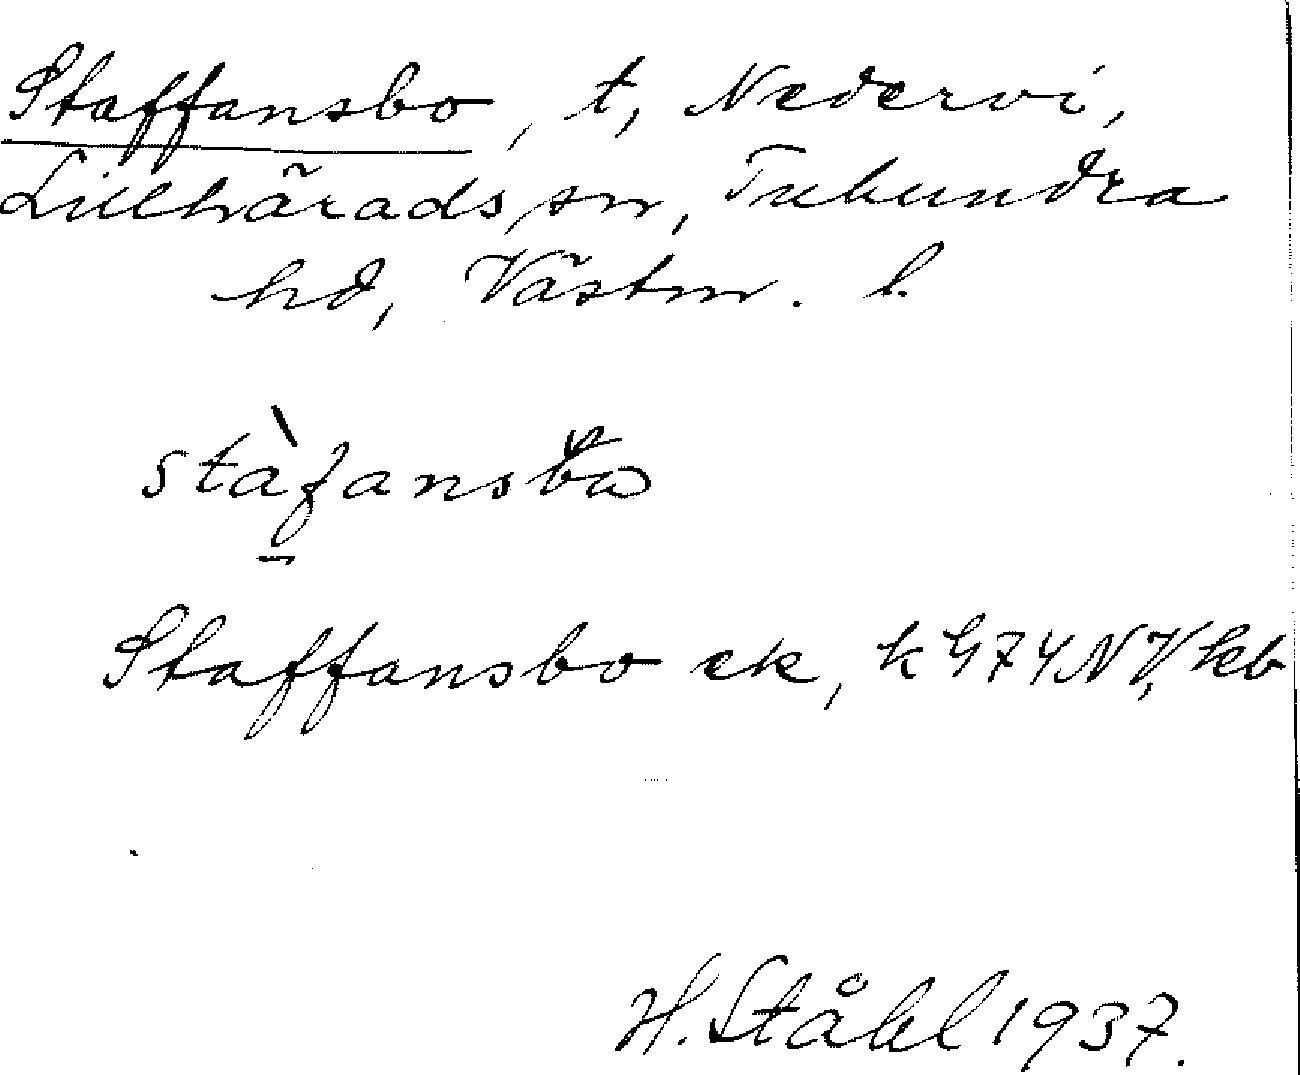 Staffansbo, t, Nedervi,
Lillhärads sn, Tuhundra
hd, Västm. l.
stàfansbω
Staffansbo ek, k 974 NV, kb
H. Ståhl 1937.